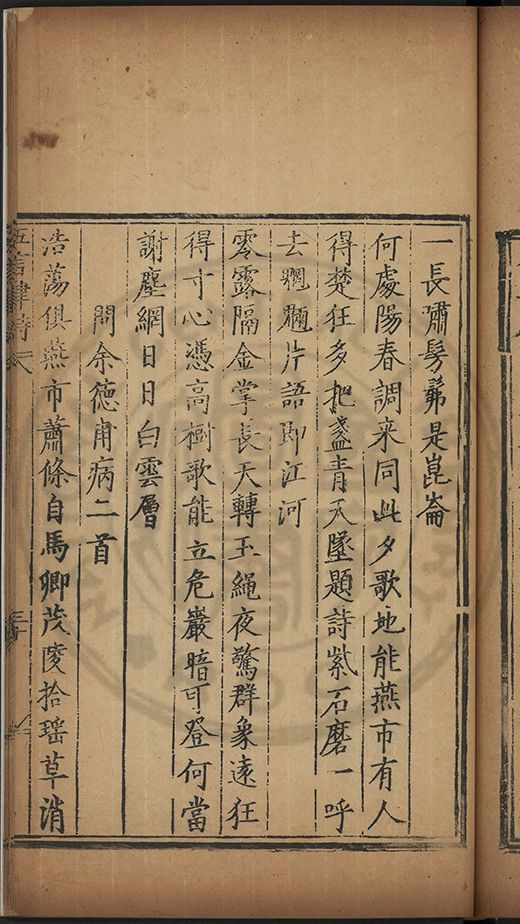 一長嘯髣髴是崑崙
何處陽春調来同此夕歌地能燕市有人
得楚狂多把盞青天墜題詩紫石磨一呼
去魍魎片語即江河
零露隔金掌長天轉玉繩夜驚群象遠狂
得寸心憑高樹歌能立危巖暗可登何當
謝塵網日日白雲層
問余德甫病二首
浩蕩俱燕市蕭條自馬卿茂陵拾瑶草消
五言律詩